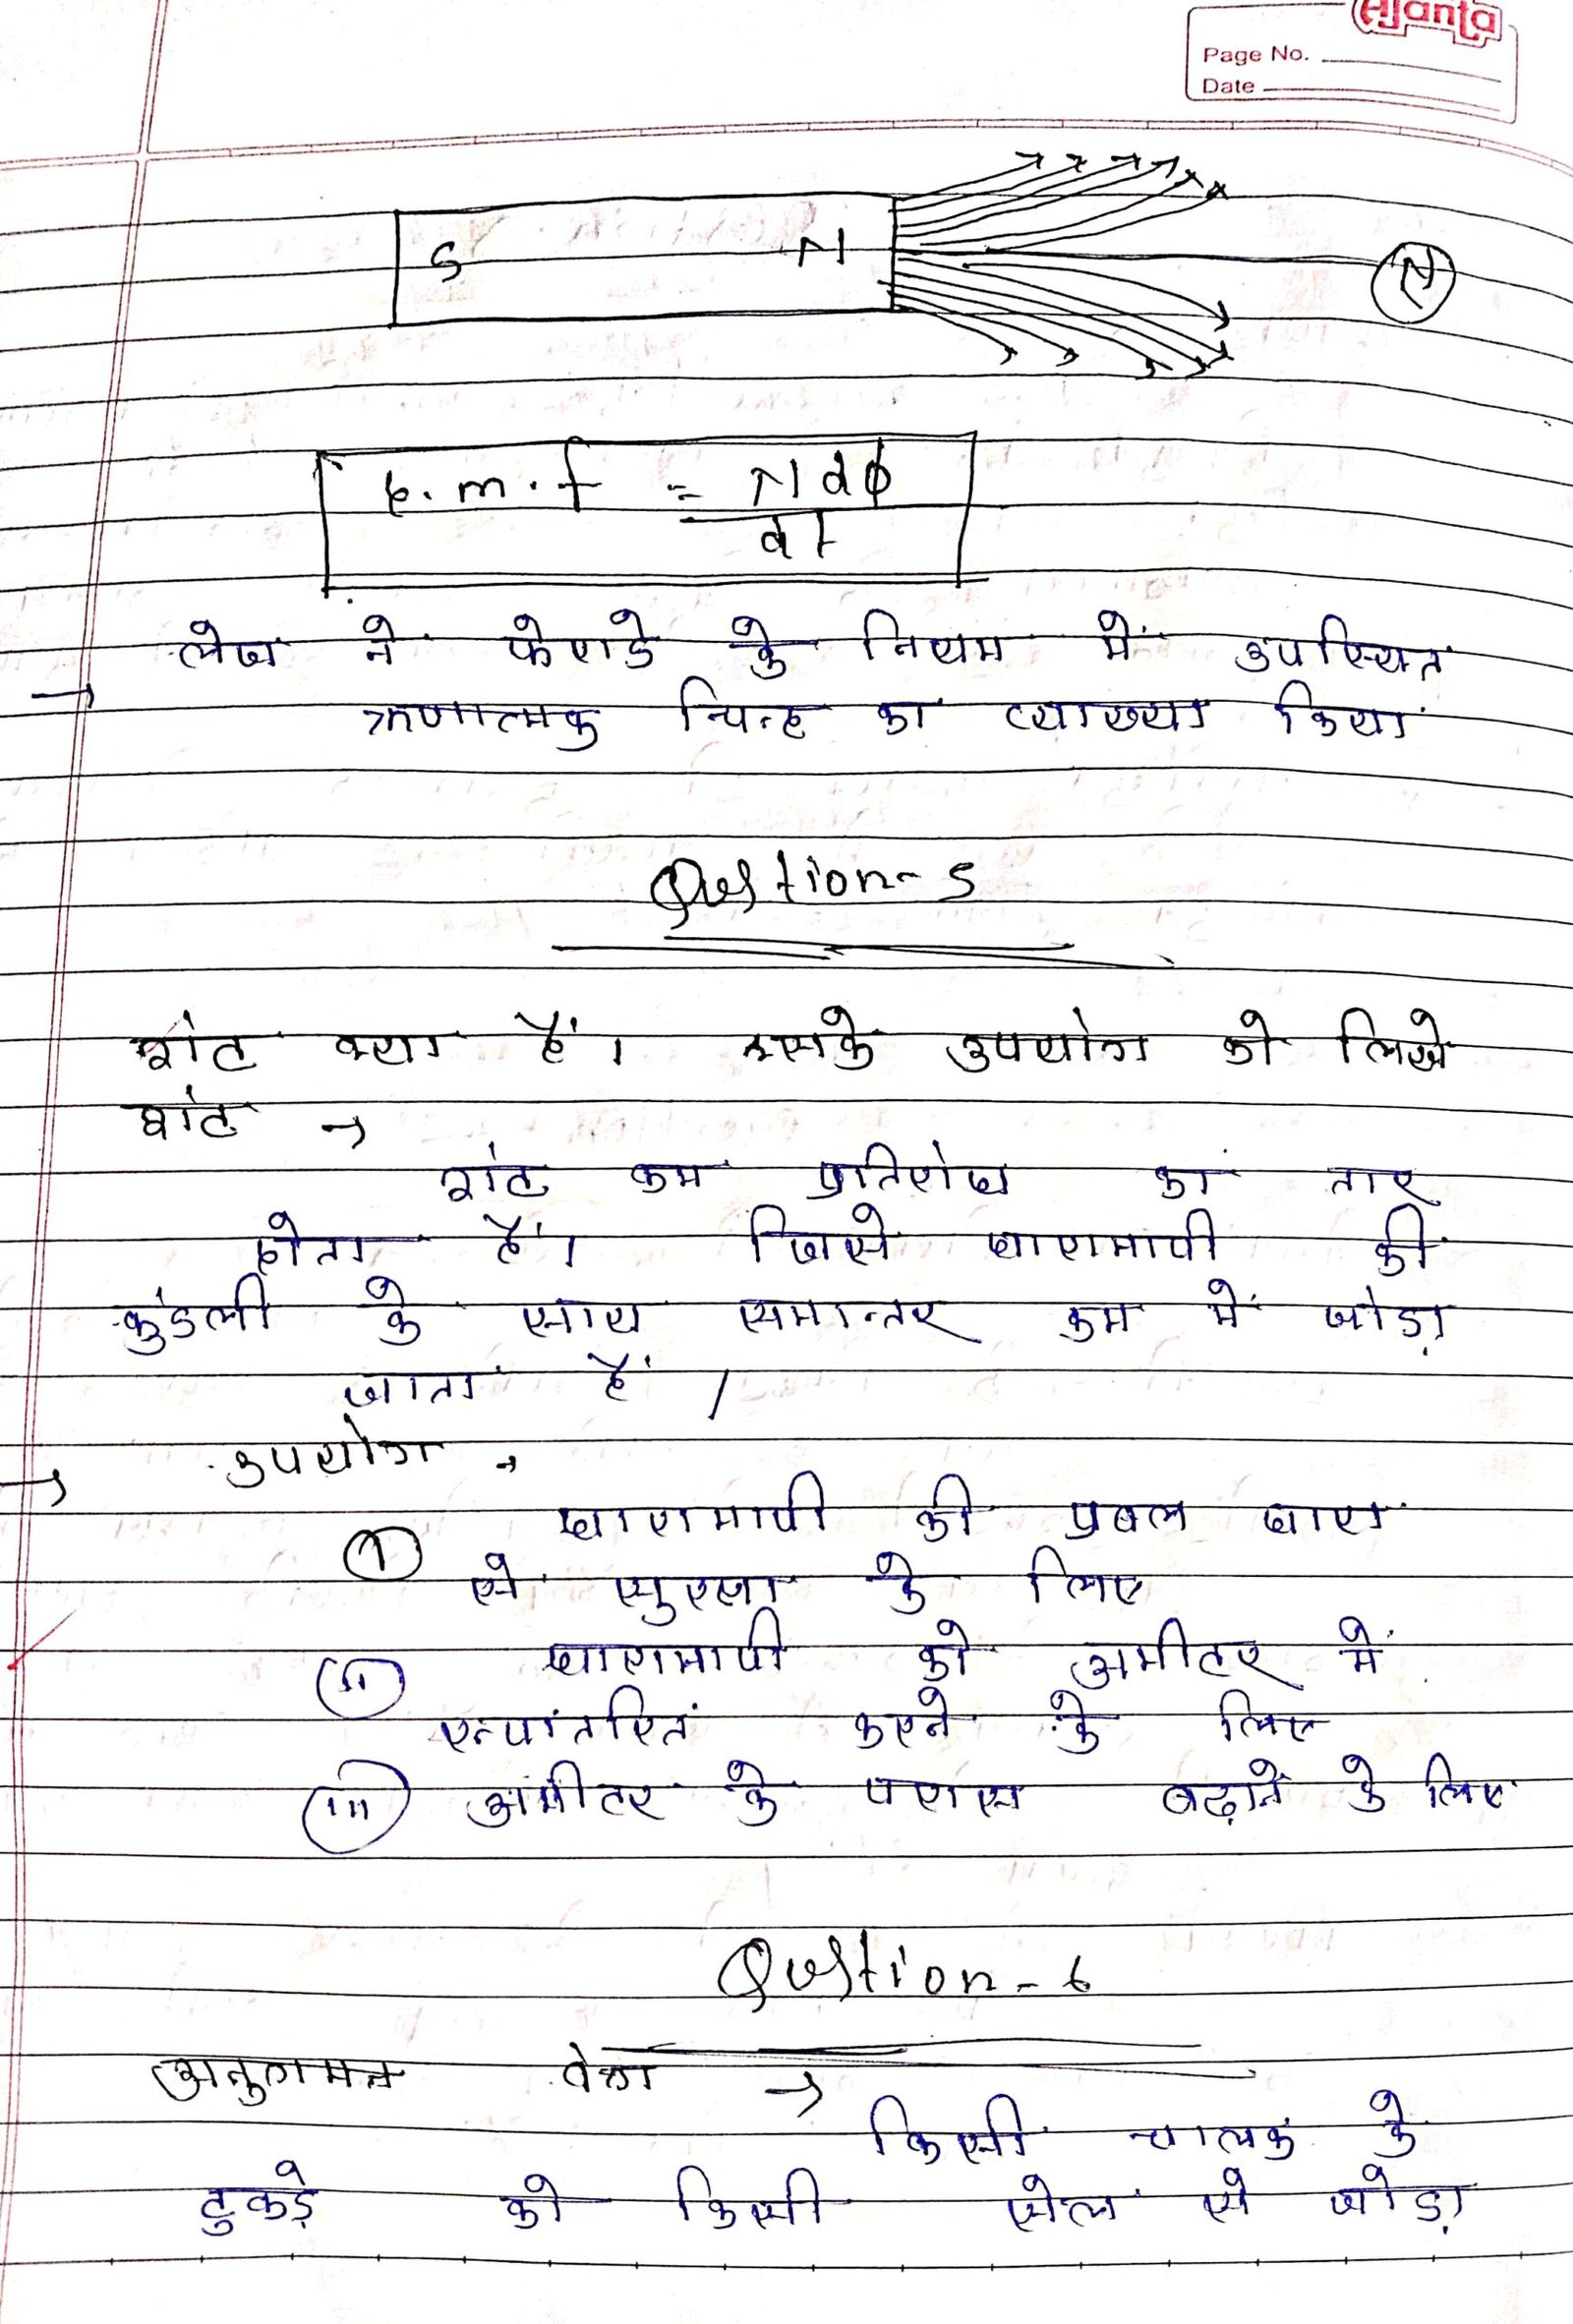 Ajanta
Page No.
Date
S N N
e.m.f = N dφ
dt
लेंज ने फेराडे के नियम में उपस्थित
→ ऋणात्मक चिन्ह का व्याख्या किया
Question-5
शंट क्या हैं। इसके उपयोग को लिखे
शंट →
शंट कम प्रतिरोध का तार
होता हैं। जिसे धारामापी की
कुंडली के साथ समान्तर क्रम में जोड़ा
जाता हैं /
→ उपयोग →
(i) धारामापी की प्रबल धारा
से सुरक्षा के लिए
(ii) धारामापी को अमीटर में
रूपांतरित करने के लिए
(iii) अमीटर के परास बढ़ाने के लिए
Question-6
अनुगमन वेग →
किसी चालक के
टुकड़े को किसी सेल से जोड़ा